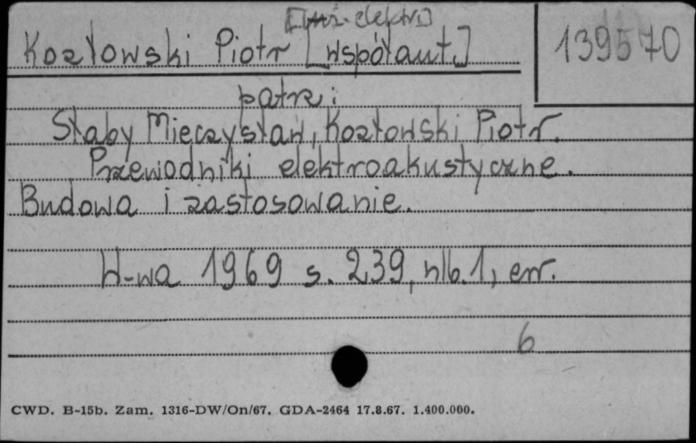 [inż. elektr.]
Kozłowski Piotr [współaut.]
139570
patrz:
Słaby Mieczysław, Kozłowski Piotr.
Przewodniki elektroakustyczne.
Budowa i zastosowanie.
W-wa 1969 s. 239, nlb. 1, err.
6
CWD. B-15b. Zam. 1316-DW/On/67. GDA-2464 17.8.67. 1.400.000.